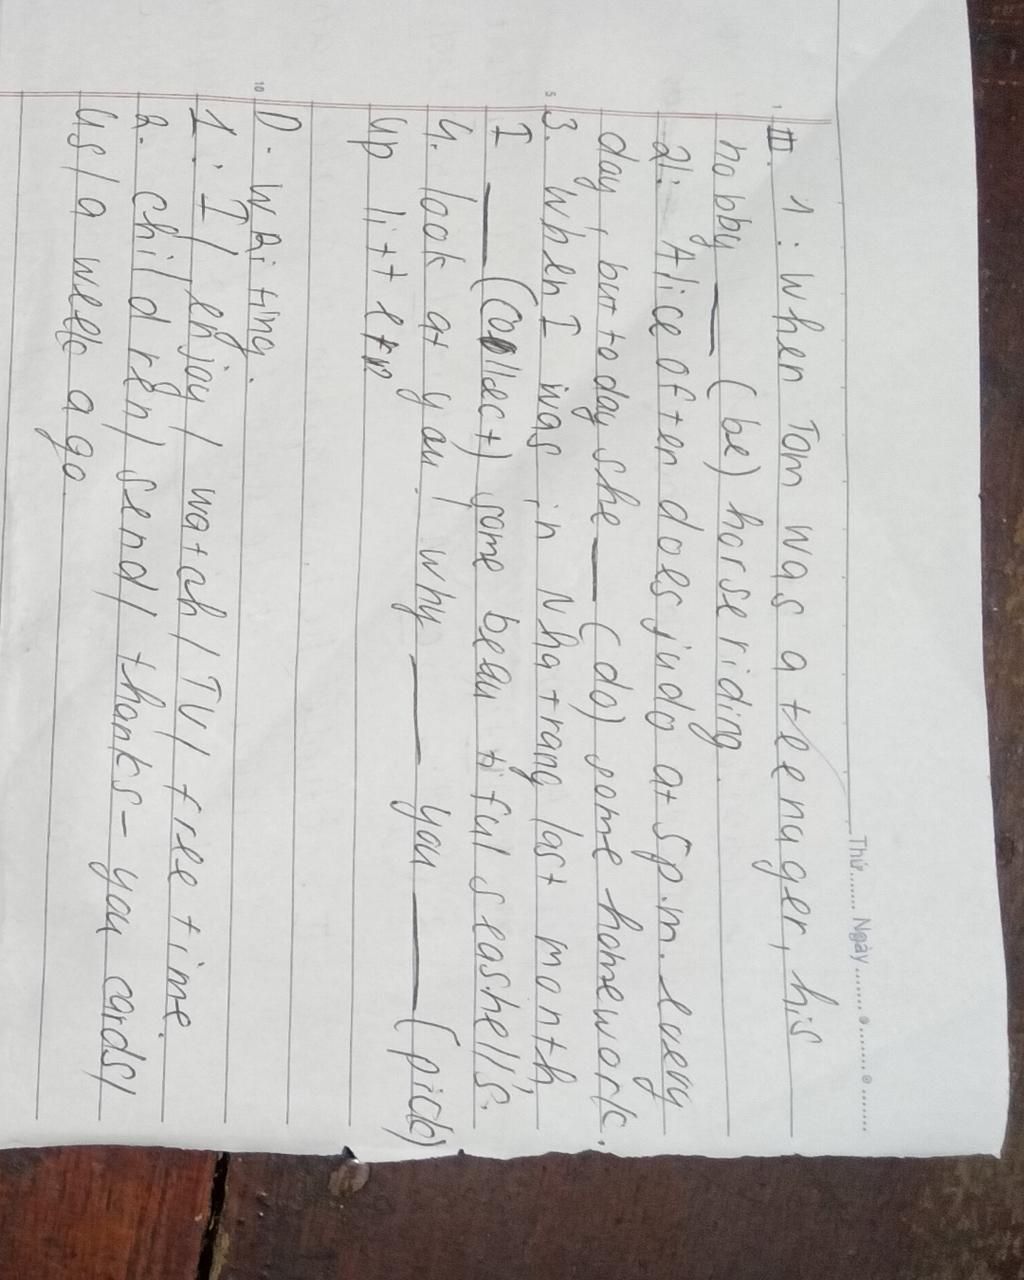 Thứ........ Ngày ........................
II. 1. When Tom was a teenager, his
hobby ___ (be) horse riding.
2. Alice often does judo at 5 p.m. every
day, but today she ___ (do) some homework.
3. When I was in Nha trang last month,
I ___ (collect) some beautiful seashells.
4. look at you! Why ___ you ___ (pick)
up litter
D. WRiting.
1. I / enjoy / watch / TV / free time.
2. children / send / thanks - you cards /
us / a week ago
1
5
10